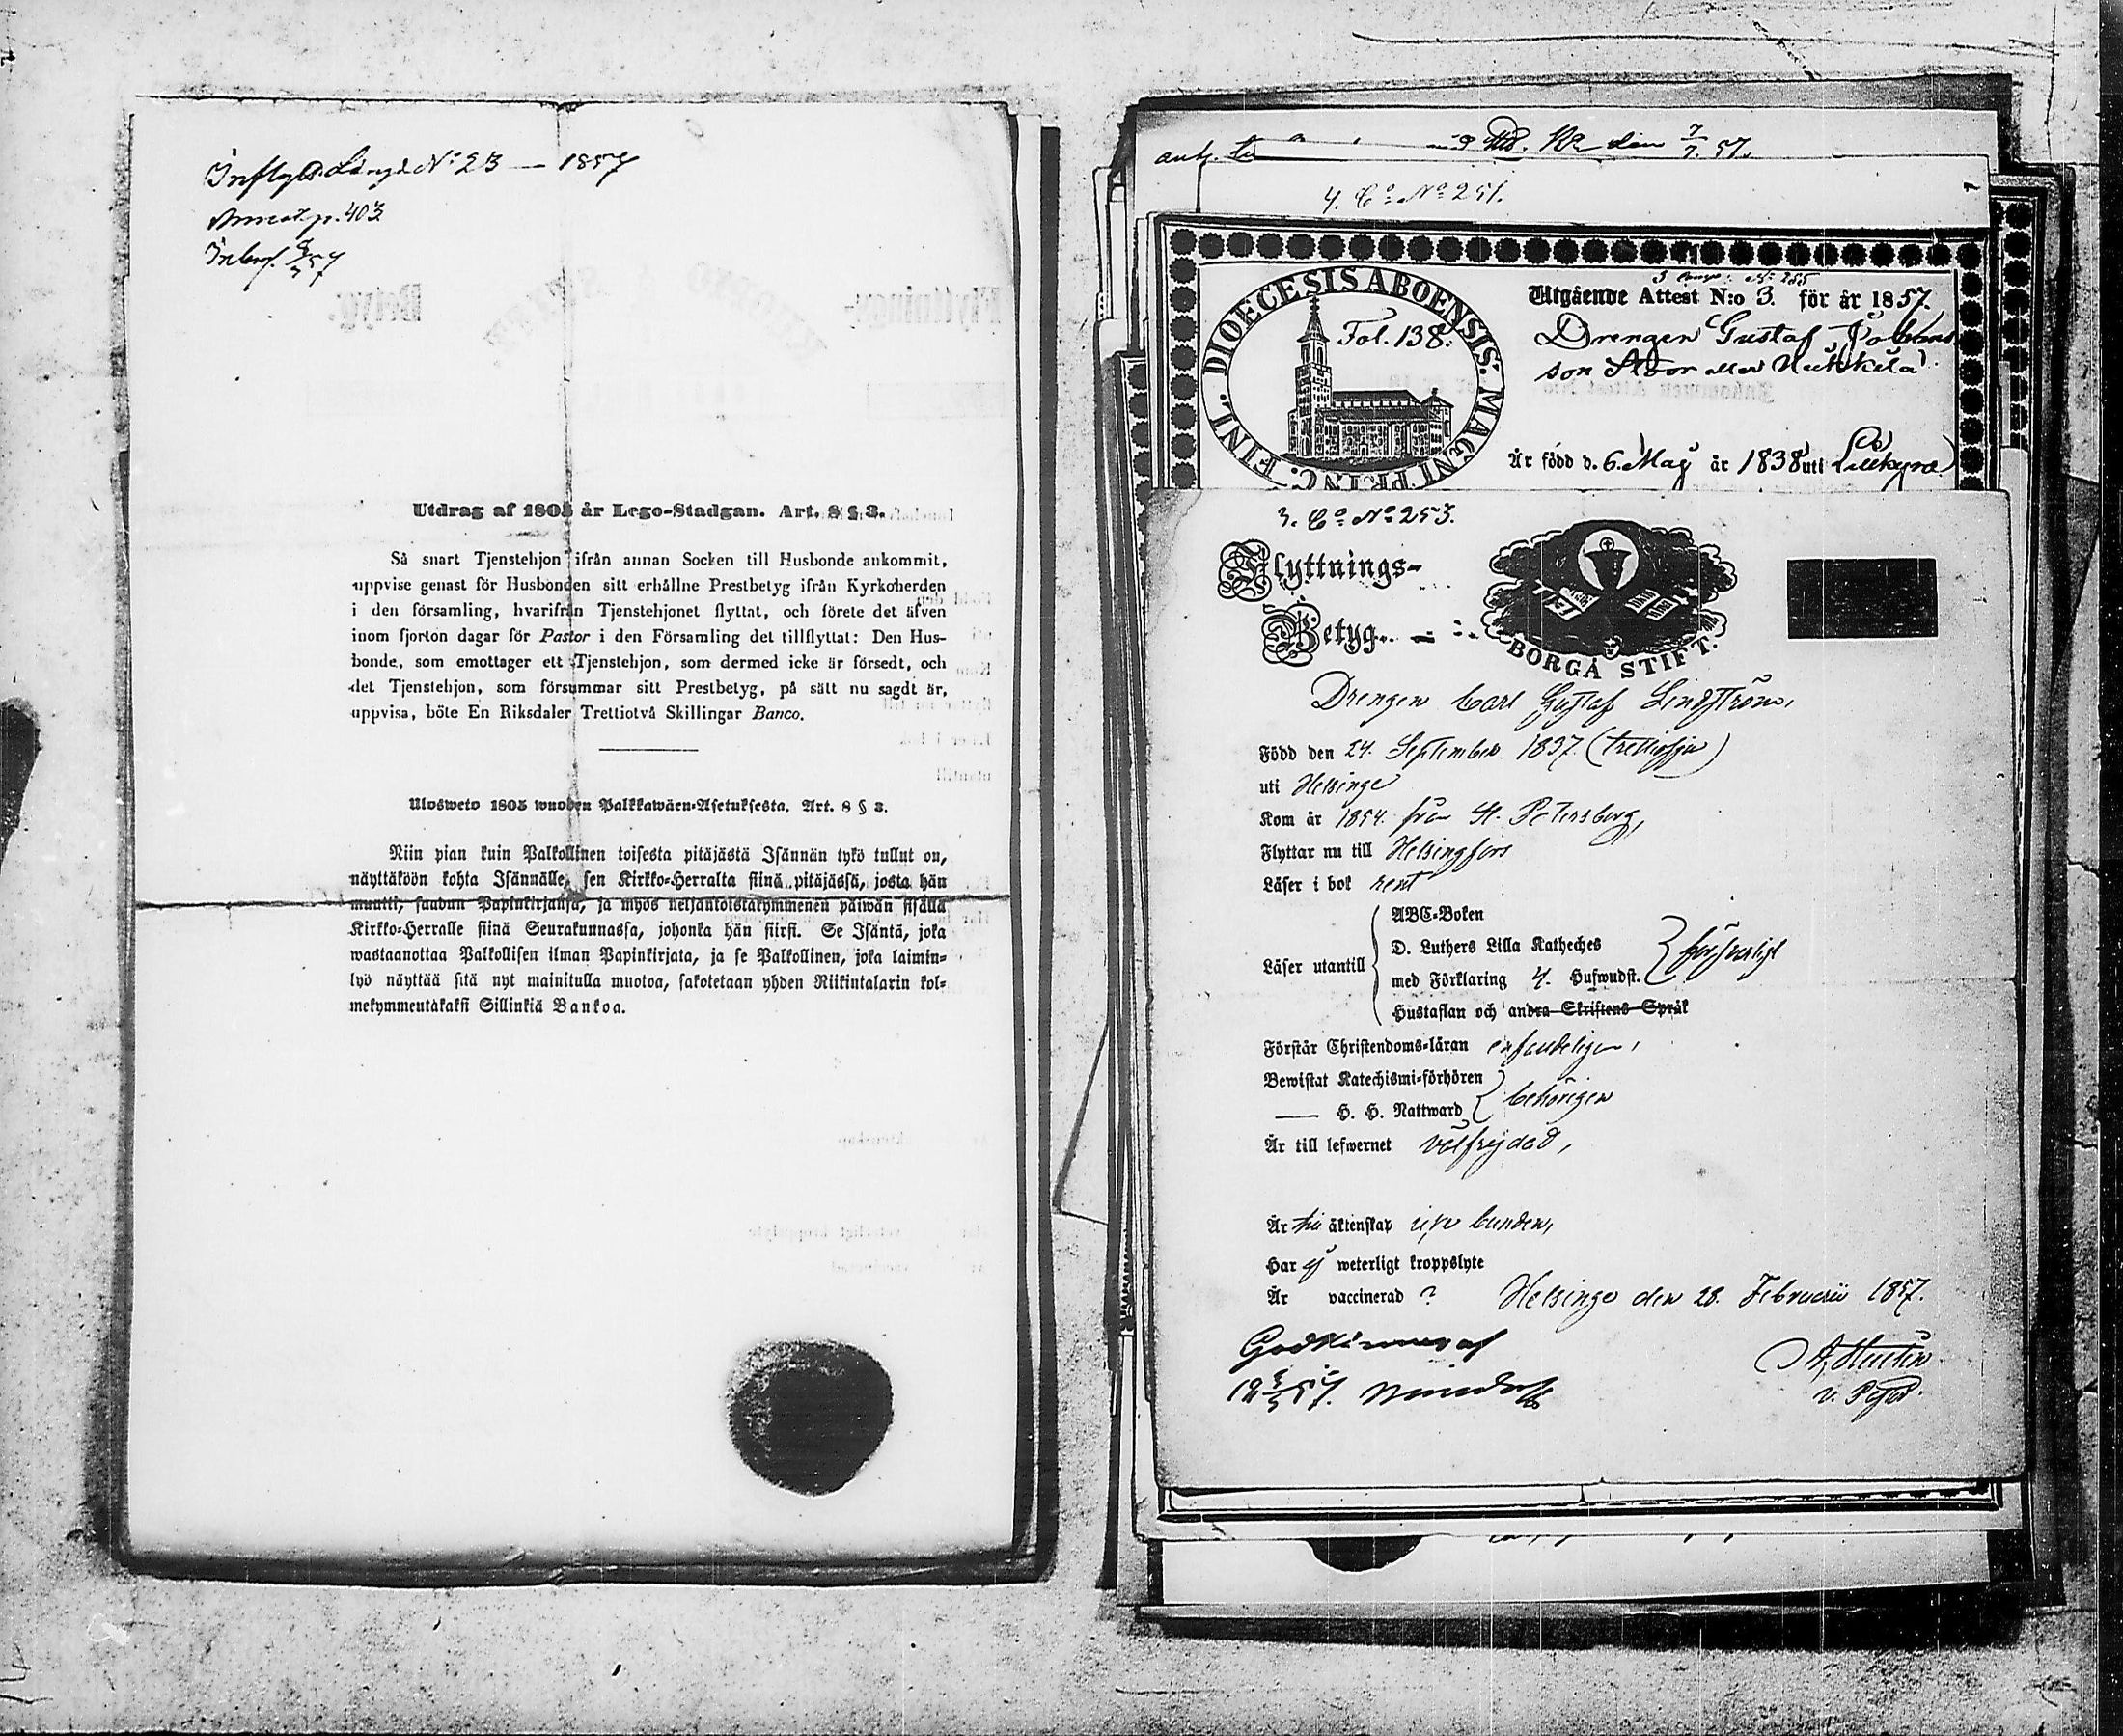 Inflytt. Längd No 23 — 1857
Annot. p. 403
Utdrag af 1805 år Lego-Stadgan. Art. 8 § 3.
Så snart Tjenstehjon ifrån annan Socken till Husbonde ankommit,
uppvise genast för Husbonden sitt erhållne Prestbetyg ifrån Kyrkoherden
i den församling, hvarifrån Tjenstehjonet flyttat, och förete det äfven
inom fjorton dagar för Pastor i den Församling det tillflyttat: Den Hus-
bonde, som emottager ett Tjenstehjon, som dermed icke är försedt, och
det Tjenstehjon, som försummar sitt Prestbetyg, på sätt nu sagdt är,
uppvisa, böte En Riksdaler Trettiotvå Skillingar Banco.
Ulosweto 1805 wuoden Palkkawäen-Asetuksesta. Art. 8 § 3.
Niin pian kuin Palkollinen toisesta pitäjästä Isännän tykö tullut on,
näyttäköön kohta Isännälle, sen Kirkko-Herralta siinä pitäjässä, josta hän
muutti, saadun Papinkirjansa, ja myös neljäntoistakymmenen päiwän sisällä
Kirkko-Herralle siinä Seurakunnassa, johonka hän siirsi. Se Isäntä, joka
wastaanottaa Palkollisen ilman Papinkirjata, ja se Palkollinen, joka laimin-
lyö näyttää sitä nyt mainitulla muotoa, sakotetaan yhden Riikintalarin kol-
mekymmentäkaksi Sillinkiä Bankoa.
den 7/7. 57.
4. Co No 251.
DIOECESIS ABOENSIS. MAGNI PRINC. FINL.
Fol. 138.
3 Comp: No 255
Utgående Attest N:o 3. för år 1857.
Drengen Gustaf Johans
son Stoor eller Nukkila
Är född d. 6. Maij år 1838 uti Lillkyro
3. Co No 253.
Flyttnings-
Betyg.
BORGÅ STIFT.
Drengen Carl Gustaf Lindström,
Född den 24. September 1837. (trettiosju)
uti Helsinge
Kom år 1854. från St. Petersburg,
Flyttar nu till Helsingfors
Läser i bok rent
ABC-Boken
D. Luthers Lilla Katheches
Läser utantill
med Förklaring 4. Hufwudst. försvarligt
Hustaflan och andra Skriftens Språk
Förstår Christendoms-läran enfaldeligen,
Bewistat Katechismi-förhören
behörigen
— H. H. Nattward
Är till lefwernet välfrejdad,
Är till äktenskap icke bunden,
Har ej weterligt kroppslyte
Är vaccinerad ? Helsinge den 28. Februarii 1857.